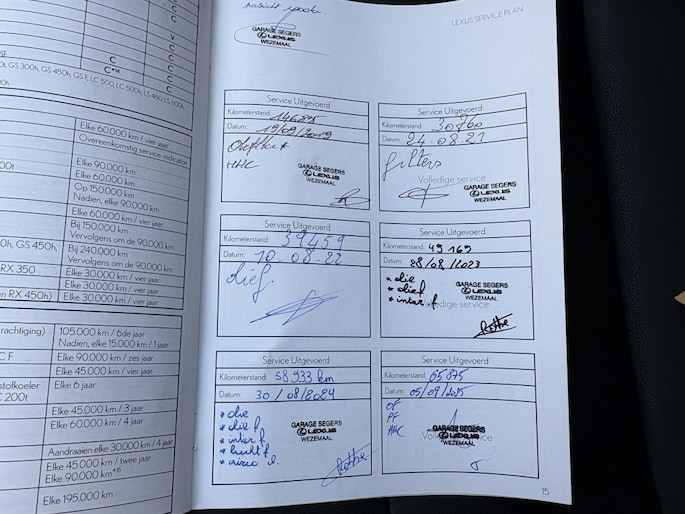 C
C
V
C
C
C
C*14
C
t, GS 300h, GS 450h, GS F, LC 500, LC 500h, LS 460, LS 600h,
Elke 60.000 km / vier jaar
Overeenkomstig service-indicator
Elke 90.000 km
Elke 60.000 km
Op 150.000 km
Nadien, elke 90.000 km
Elke 60.000 km / vier jaar
Bij 150.000 km
Vervolgens om de 90.000 km
0h, GS 450h,
Bij 240.000 km
Vervolgens om de 90.000 km
RX 350
Elke 30.000 km / vier jaar
Elke 30.000 km / vier jaar
en RX 450h)
Elke 30.000 km / vier jaar
rachtiging)
105.000 km / 6de jaar
Nadien, elke 15.000 km / 1 jaar
C F
Elke 90.000 km / zes jaar
Elke 45.000 km / vier jaar
stofkoeler
C 200t
Elke 6 jaar
Elke 45.000 km / 3 jaar
Elke 60.000 km / 4 jaar
Aandraaien elke 30.000 km / 4 jaar
Elke 45.000 km / twee jaar
Elke 90.000 km*15
Elke 195.000 km
LEXUS SERVICE PLAN
GARAGE SEGERS
LEXUS
WEZEMAAL
Service Uitgevoerd
Kilometerstand:
Datum: 19/09/2019
HHC
GARAGE SEGERS
LEXUS
WEZEMAAL
Service Uitgevoerd
Kilometerstand: 30760
Datum: 24.08.21
filters
Volledige service
GARAGE SEGERS
LEXUS
WEZEMAAL
Service Uitgevoerd
Kilometerstand: 39459
Datum: 10.08.22
dief.
Service Uitgevoerd
Kilometerstand: 49 169
Datum: 28/08/2023
* olie
* olief
* inter.f
GARAGE SEGERS
LEXUS
WEZEMAAL
Volledige service
Service Uitgevoerd
Kilometerstand: 58 933 km
Datum: 30/08/2024
* olie
* olie f.
* inter f.
* lucht f.
GARAGE SEGERS
LEXUS
WEZEMAAL
Service Uitgevoerd
Kilometerstand: 65875
Datum: 05/09/2025
OF
PF
HHC
GARAGE SEGERS
LEXUS
WEZEMAAL
Volledige service
15